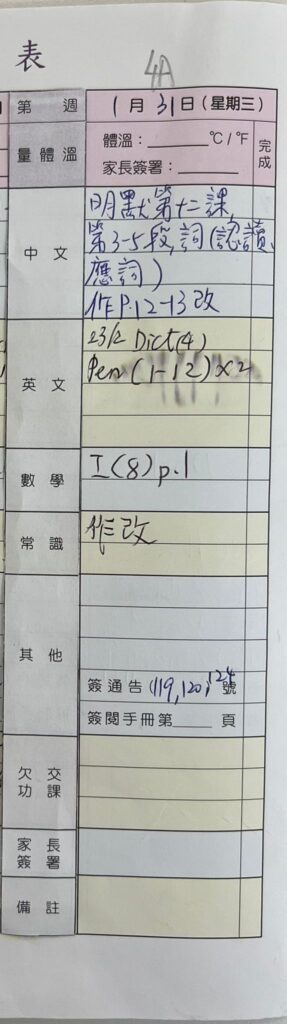 表
4A
第 週 1月31日(星期三)
量體溫 體溫：______℃/℉ 完成
家長簽署：______
中文 明默第十二課,
第3-5段,詞(認讀、
應詞)
作P.12-13改
英文 23/2 Dict(4)
Pen(1-12)×2
數學 I(8)p.1
常識 作改
其他
簽通告(119,120,124號
簽閱手冊第____頁
欠交功課
家長簽署
備註